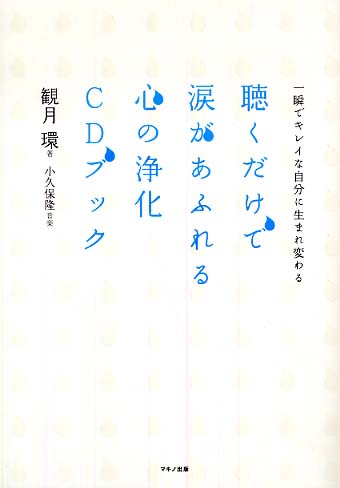 一瞬でキレイな自分に生まれ変わる
聴くだけで
涙があふれる
心の浄化
CDブック
観月 環 著
小久保隆 音楽
マキノ出版